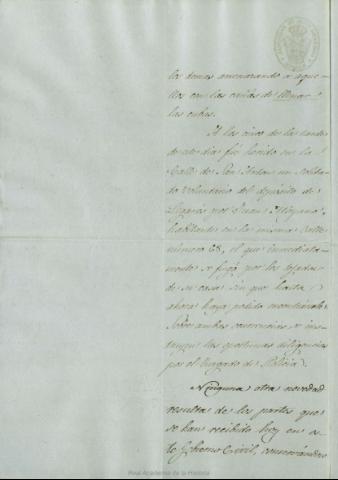 los demas amenazando a aque-
llos con las cañas de llenar
las cubas.
A las cinco de la tarde
de este dia fué herido en la
Calle de San Anton un solda-
do voluntario del depósito de
por Juan
habitante en la misma calle
número 28, el que inmediata-
mente se fugó por los tejados
de su casa sin que hasta
ahora haya podido encontrársele.
Sobre ambas ocurrencias se ins-
truyen las oportunas diligencias
por el Juzgado de Policia.
Ninguna otra novedad
resulta de los partes que
se han recibido hoy en es-
te Gobierno Civil, conservándose
Real Academia de la Historia